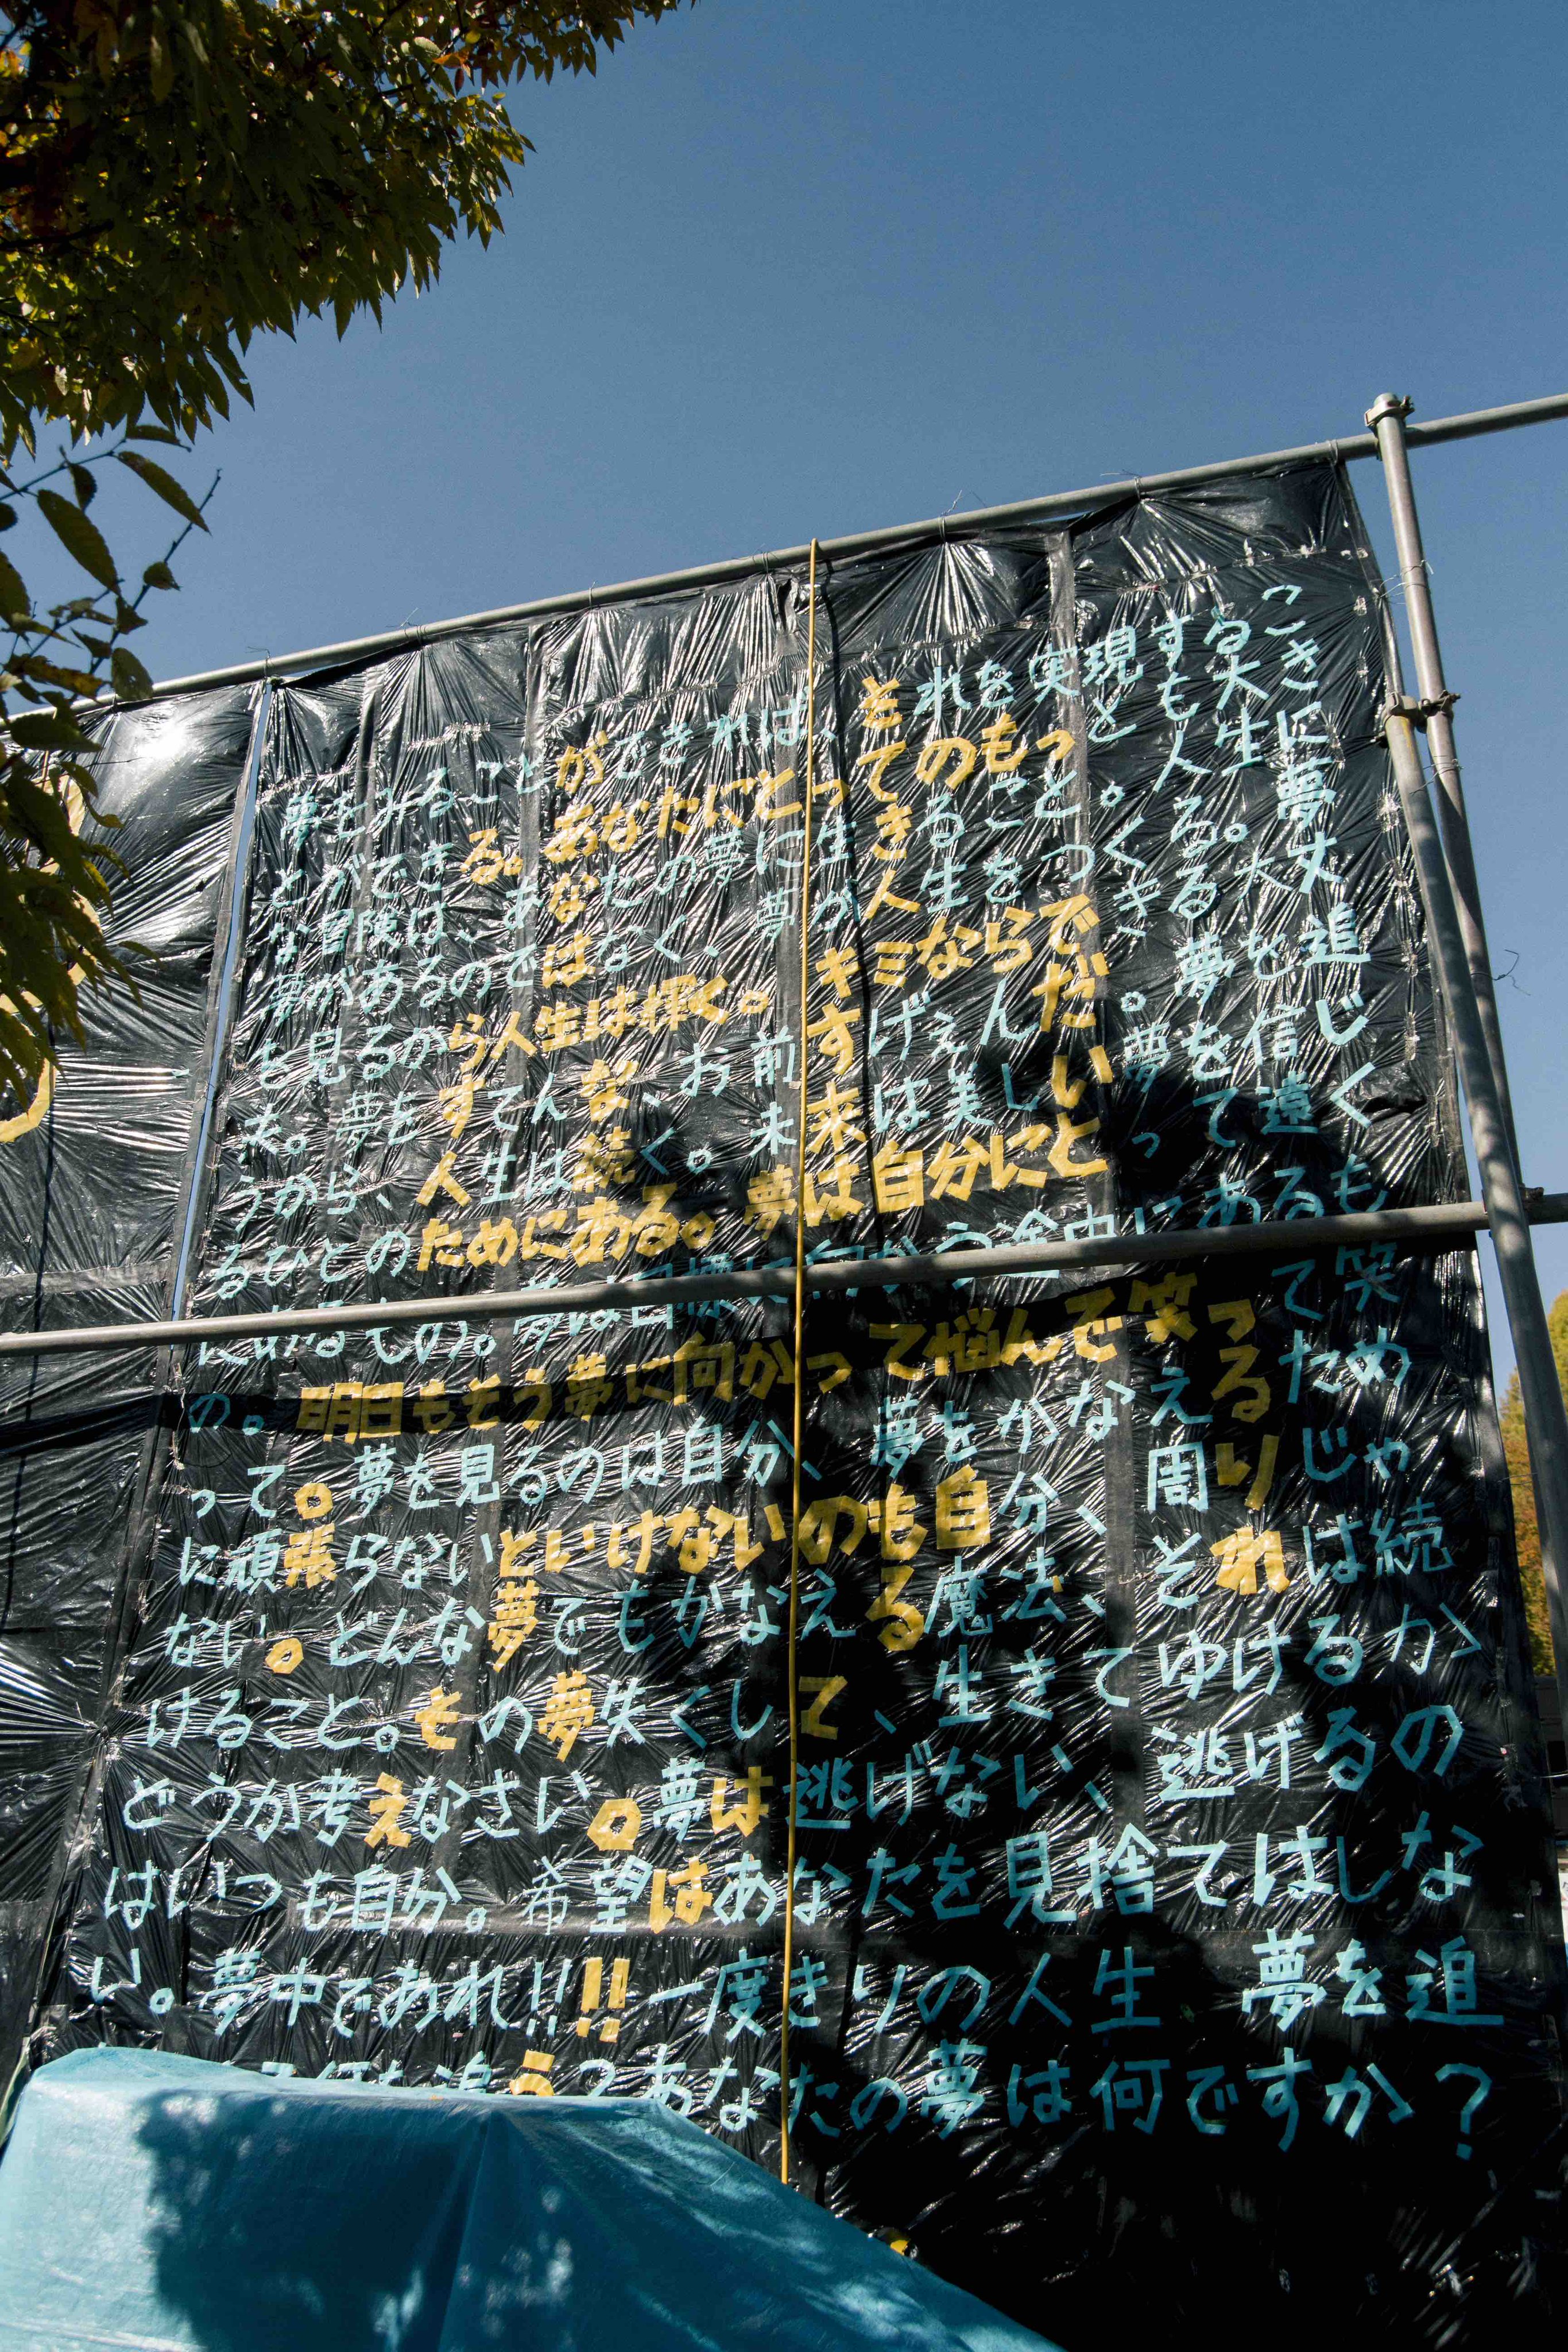 夢をみることができれば、それを実現するこ
とができる。あなたにとってのもっとも大き
な冒険は、あなたの夢に生きること。人生に
夢があるのではなく、夢が人生をつくる。夢
を見るから人生は輝く。キミならできる大丈
夫。夢もすてんな、お前すげえんだ。夢を追
うから、人生は続く。未来は美しい夢を信じ
るひとのためにある。夢は自分にとって遠く
にあるもの。夢は目標に向かう途中にあるも
の。明日もそう夢に向かって悩んで笑って笑
って。夢を見るのは自分、夢をかなえるため
に頑張らないといけないのも自分、周りじゃ
ない。どんな夢でもかなえる魔法、それは続
けること。その夢失くして、生きてゆけるか
どうか考えなさい。夢は逃げない、逃げるの
はいつも自分。希望はあなたを見捨てはしな
い。夢中であれ!!!! 一度きりの人生 夢を追
追う?あなたの夢は何ですか?